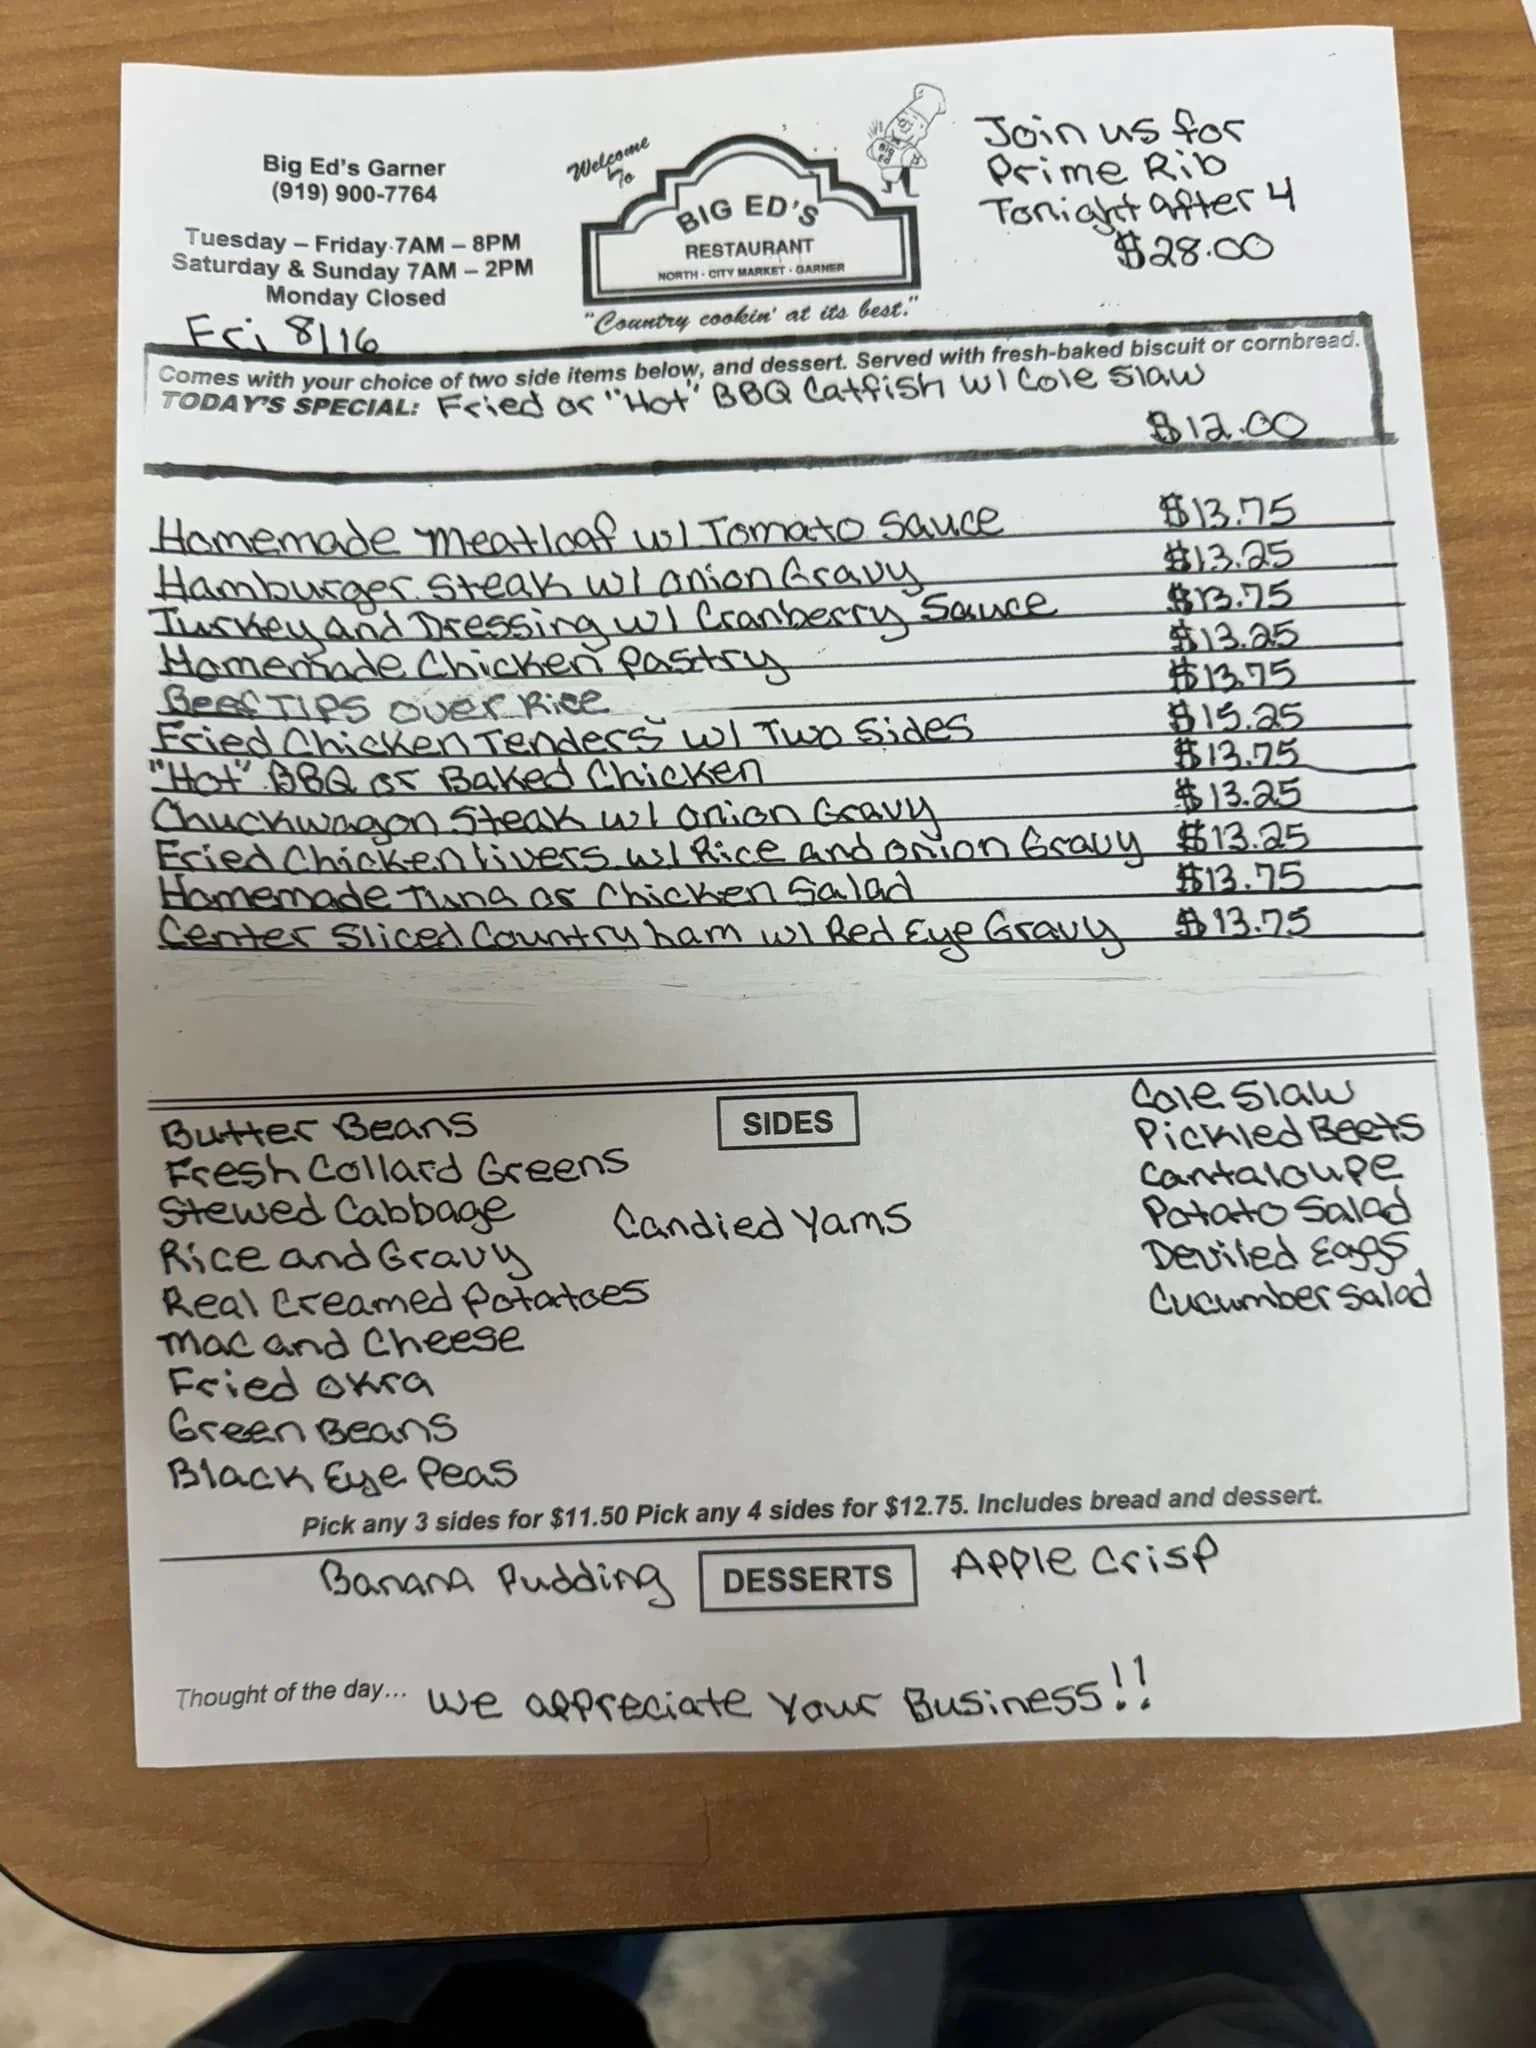 Big Ed's Garner
(919) 900-7764
Tuesday – Friday 7AM – 8PM
Saturday & Sunday 7AM – 2PM
Monday Closed
Fri 8/16
Welcome
To
BIG ED'S
RESTAURANT
NORTH · CITY MARKET · GARNER
"Country cookin' at its best."
Big
Ed
Join us for
Prime Rib
Tonight after 4
$28.00
Comes with your choice of two side items below, and dessert. Served with fresh-baked biscuit or cornbread.
TODAY'S SPECIAL: Fried or "Hot" BBQ Catfish w/ Cole Slaw
$12.00
Homemade Meatloaf w/ Tomato Sauce $13.75
Hamburger Steak w/ Onion Gravy $13.25
Turkey and Dressing w/ Cranberry Sauce $13.75
Homemade Chicken Pastry $13.25
Beef TIPS over Rice $13.75
Fried Chicken Tenders w/ Two Sides $15.25
"Hot" BBQ or Baked Chicken $13.75
Chuckwagon Steak w/ Onion Gravy $13.25
Fried Chicken livers w/ Rice and Onion Gravy $13.25
Homemade Tuna or Chicken Salad $13.75
Center Sliced Country ham w/ Red Eye Gravy $13.75
SIDES
Butter Beans
Fresh Collard Greens
Stewed Cabbage
Rice and Gravy
Real Creamed Potatoes
Mac and Cheese
Fried Okra
Green Beans
Black Eye Peas
Candied Yams
Cole Slaw
Pickled Beets
Cantaloupe
Potato Salad
Deviled Eggs
Cucumber Salad
Pick any 3 sides for $11.50 Pick any 4 sides for $12.75. Includes bread and dessert.
Banana Pudding DESSERTS Apple Crisp
Thought of the day... We appreciate Your Business!!